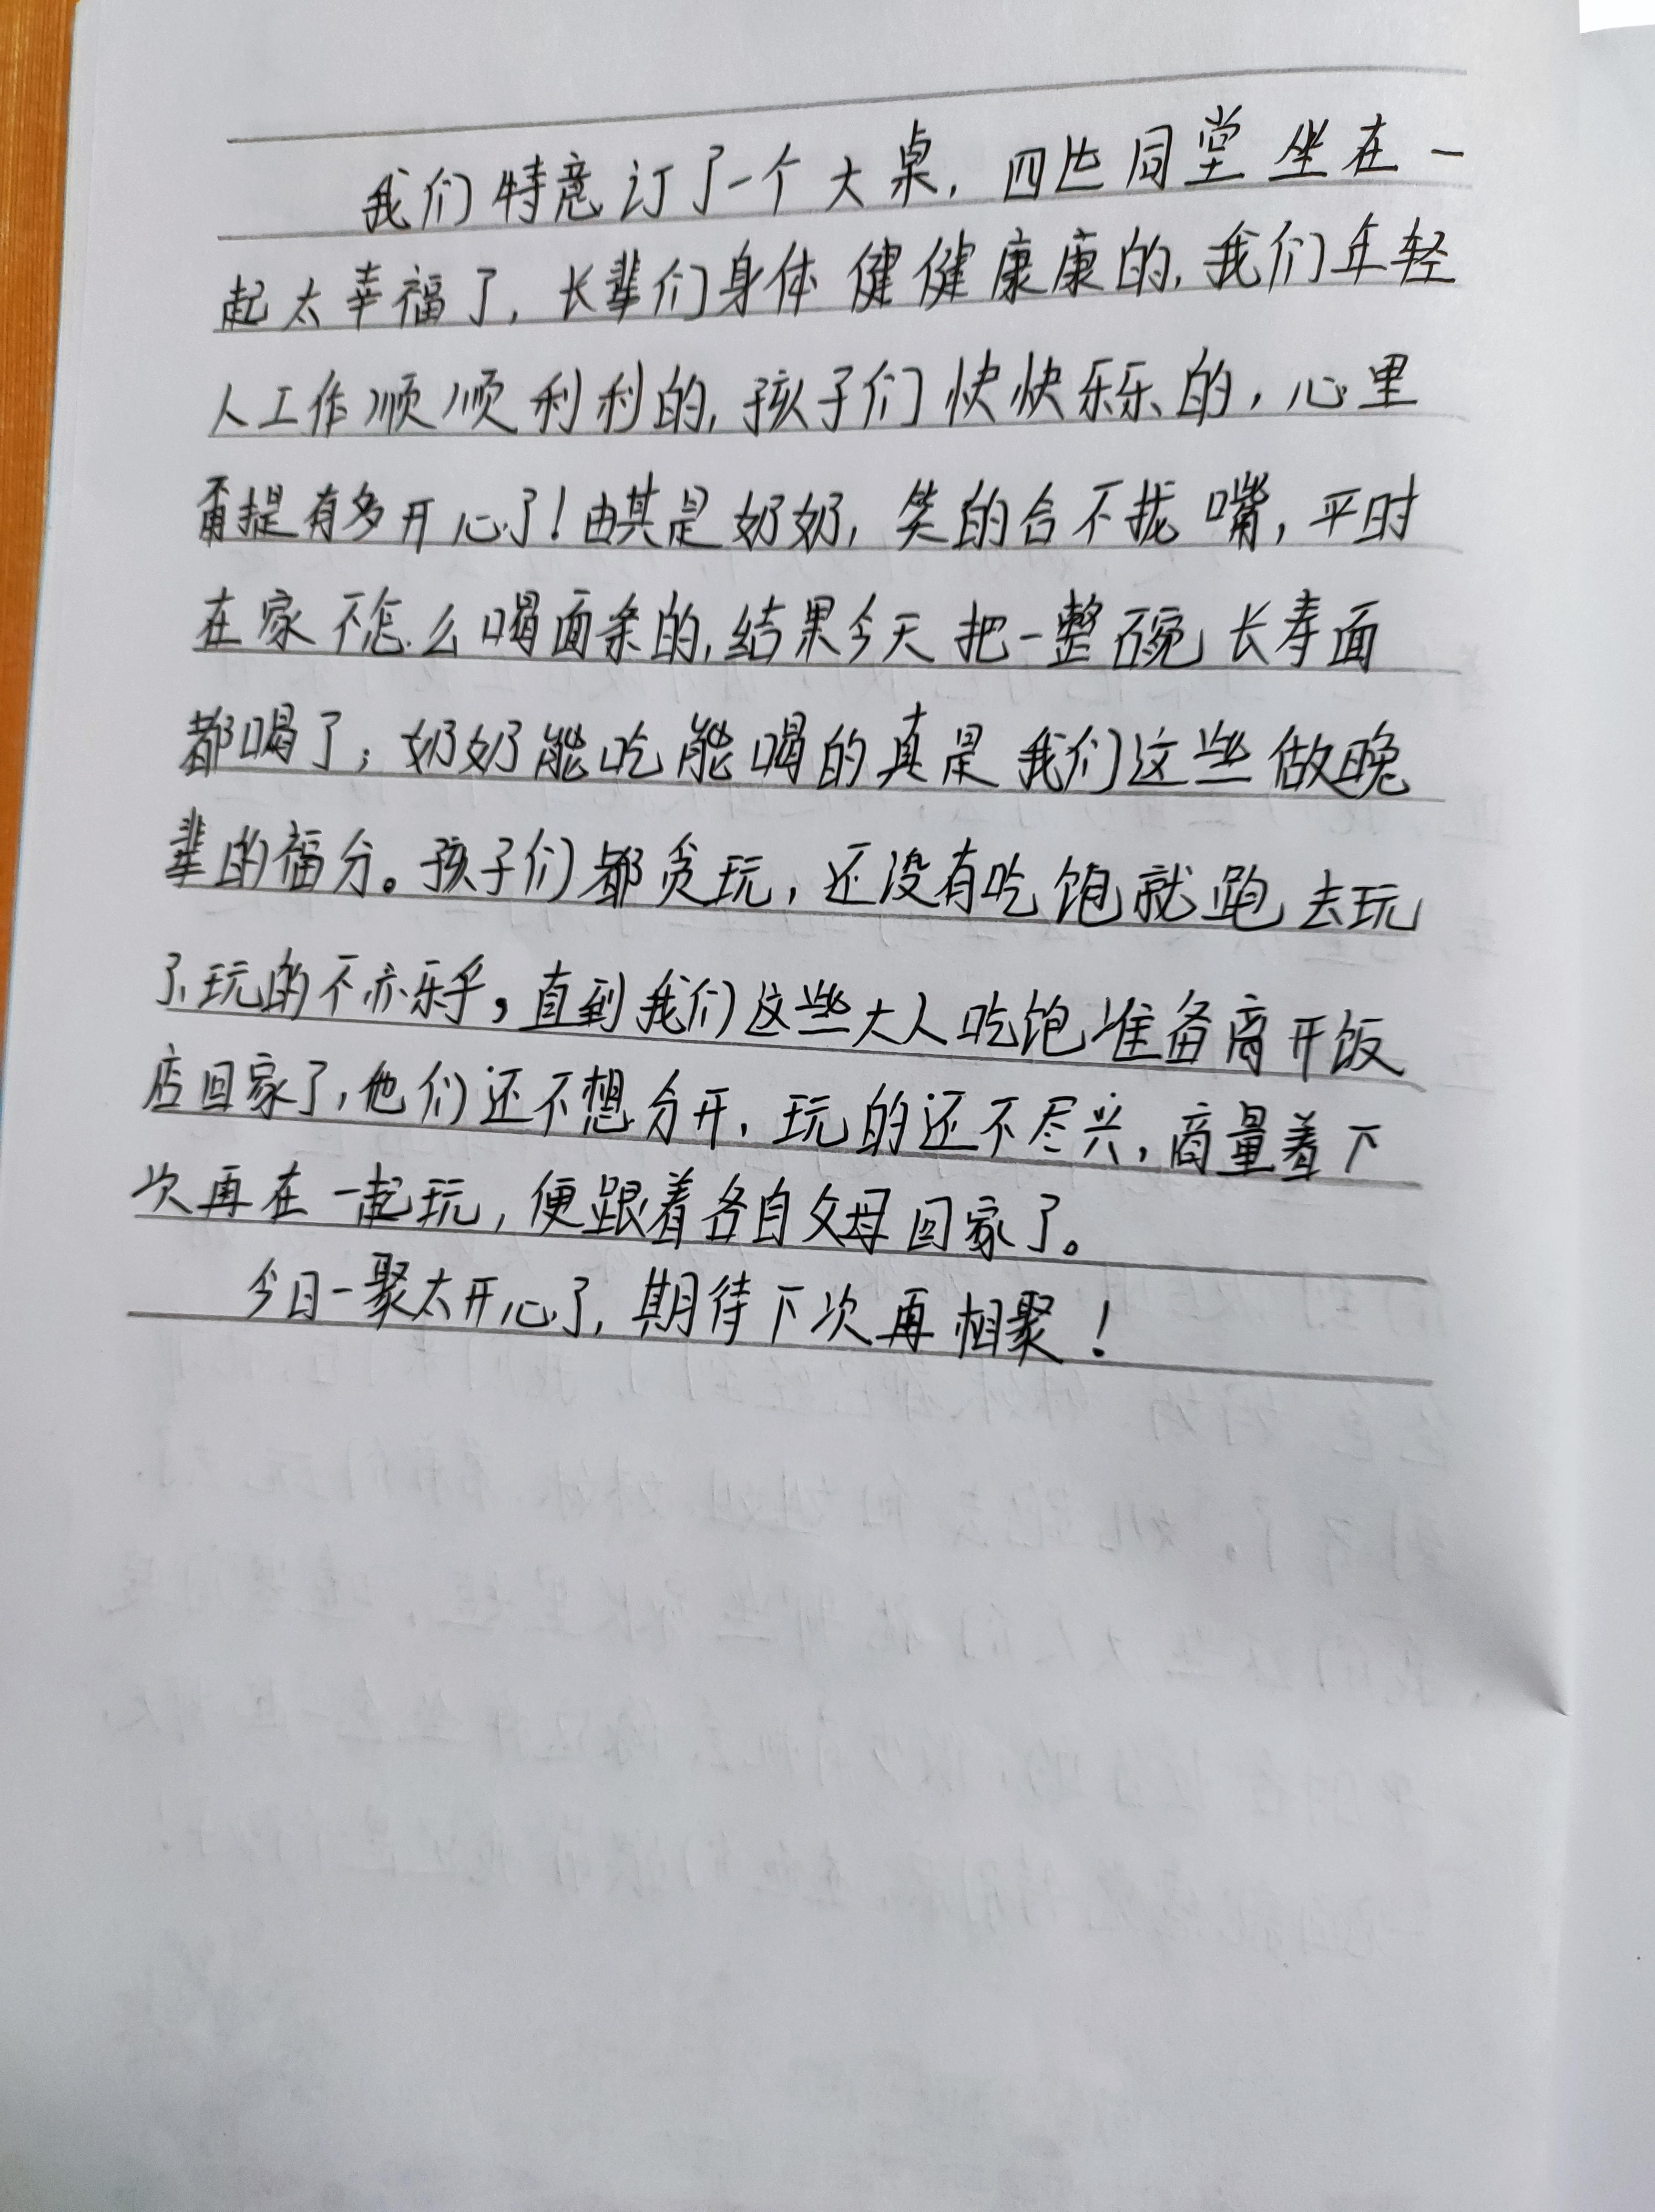 我们特意订了一个大桌，四世同堂坐在一
起太幸福了，长辈们身体健健康康的，我们年轻
人工作顺顺利利的，孩子们快快乐乐的，心里
甭提有多开心了！由其是奶奶，笑的合不拢嘴，平时
在家不怎么喝面条的，结果今天把一整碗长寿面
都喝了；奶奶能吃能喝的真是我们这些做晚
辈的福分。孩子们都贪玩，还没有吃饱就跑去玩
了，玩的不亦乐乎，直到我们这些大人吃饱准备离开饭
店回家了，他们还不想分开，玩的还不尽兴，商量着下
次再在一起玩，便跟着各自父母回家了。
今日一聚太开心了，期待下次再相聚！